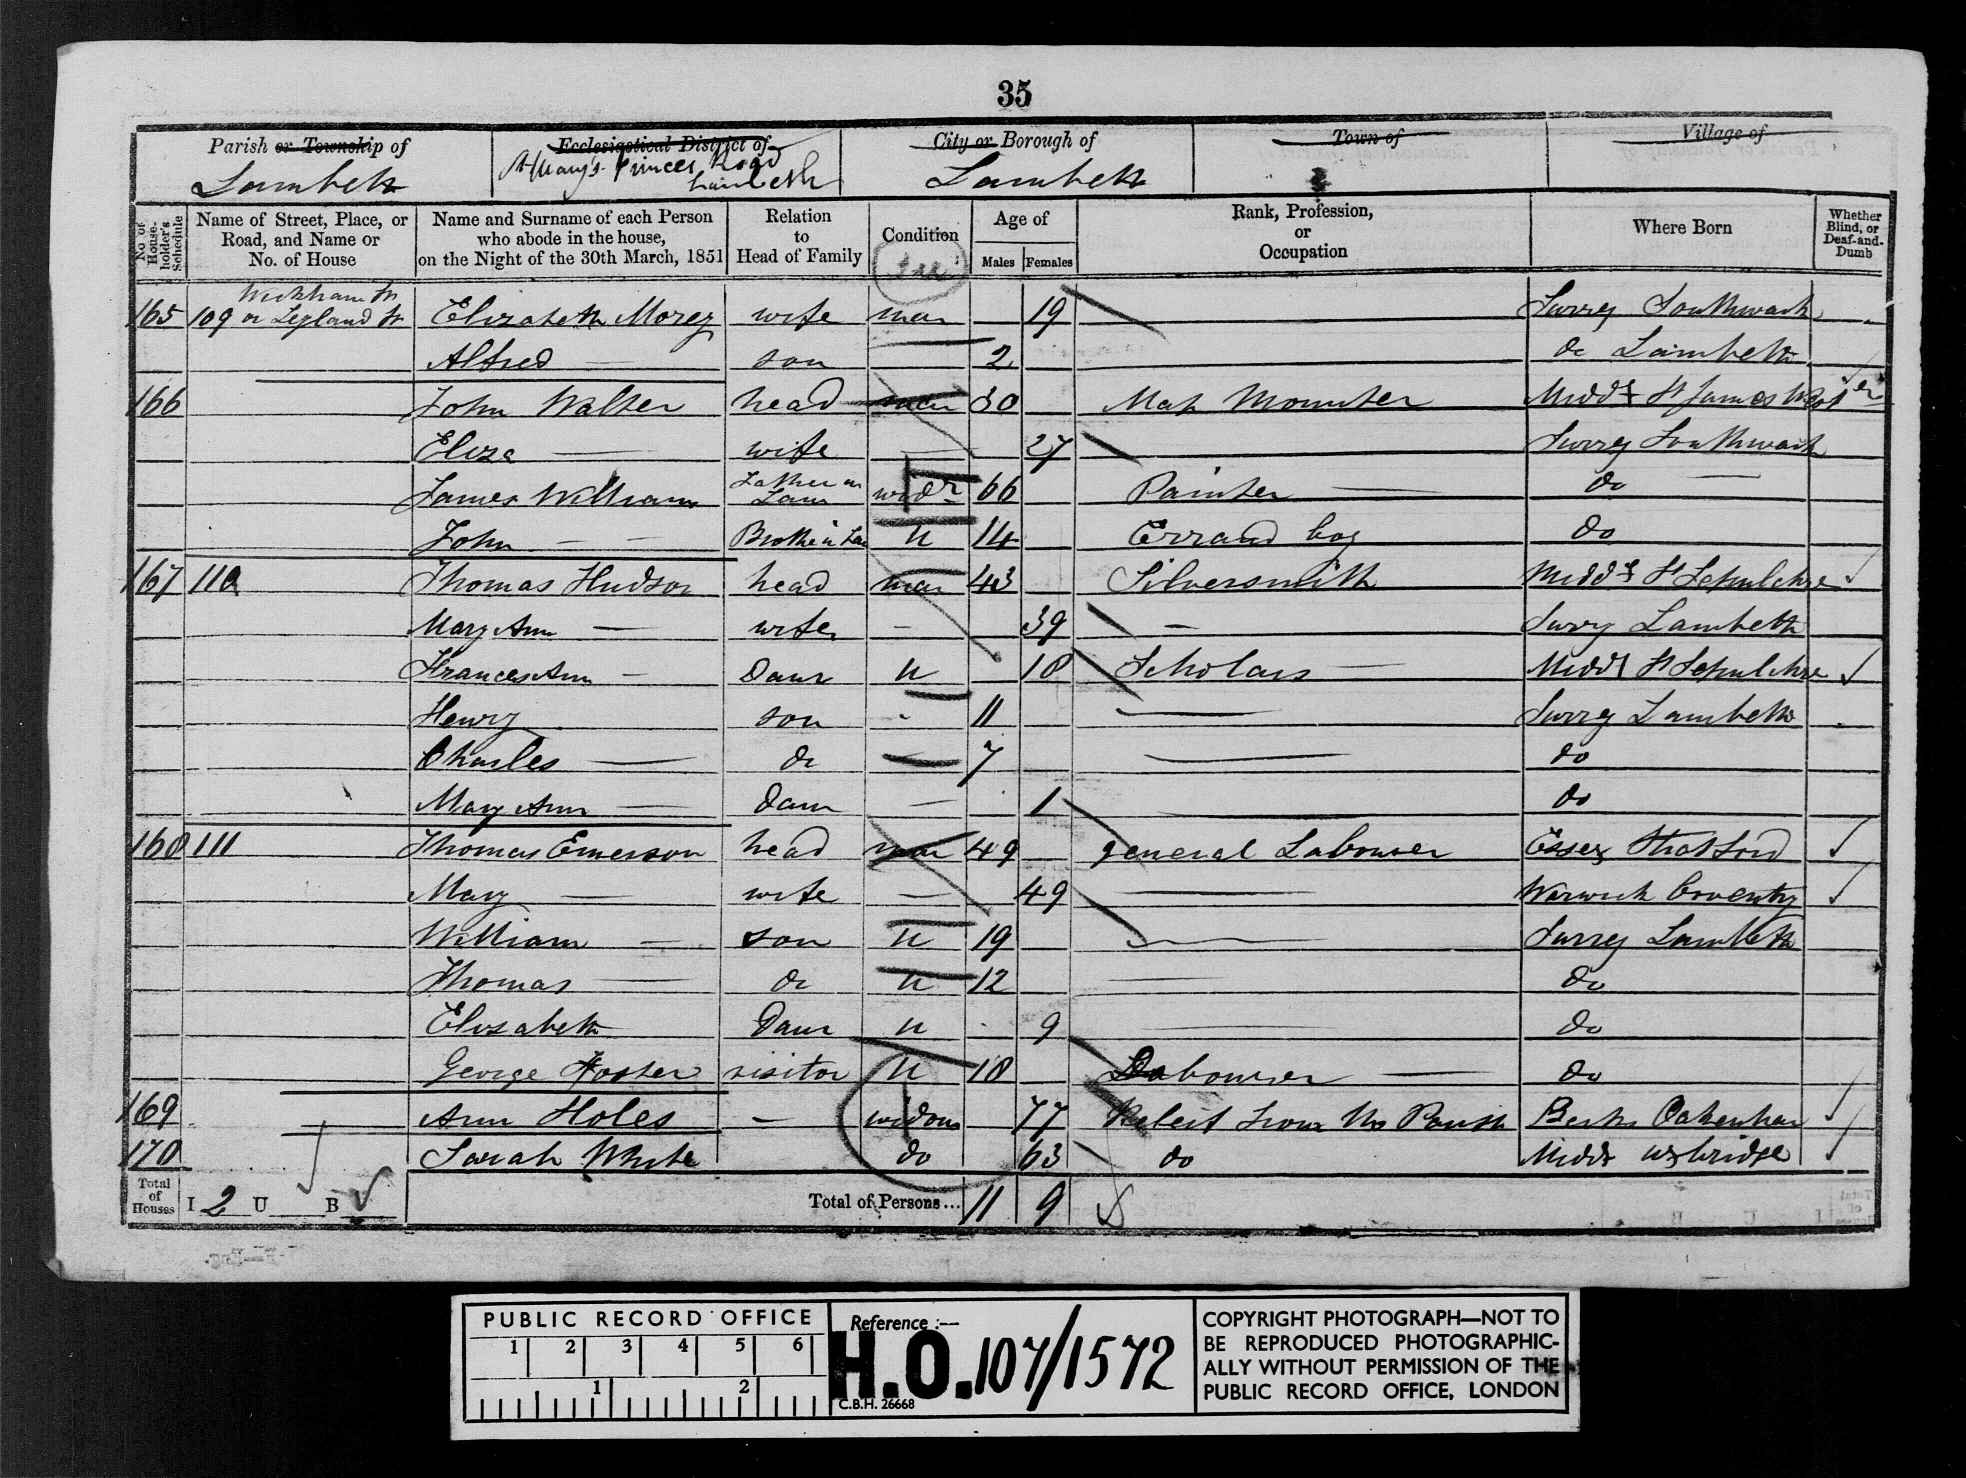 35
Parish or Township of Ecclesiastical District of City or Borough of Town of Village of
Lambeth St Mary's Princes Road Lambeth Lambeth
No. of House-holder's Schedule Name of Street, Place, or Road, and Name or No. of House Name and Surname of each Person who abode in the house, on the Night of the 30th March, 1851 Relation to Head of Family Condition Age of Males Females Rank, Profession, or Occupation Where Born Whether Blind, or Deaf-and-Dumb
165 109 Wickham St or Leyland St Elizabeth Morey wife mar 19 Surrey Southwark
Alfred — son 2 do Lambeth
166 John Walter head mar 30 Map Mounter Midd St James West
Eliza — wife — 27 Surrey Southwark
James William Father in Law widr 66 Painter — do —
John — — Brother in Law u 14 Errand boy do
167 110 Thomas Hudson head mar 43 Silversmith Midd St Sepulchre
Mary Ann — wife — 39 — Surry Lambeth
Frances Ann — Daur u 18 Scholars — Midd St Sepulchre
Henry son - 11 — Surrey Lambeth
Charles — do — 7 — do
Mary Ann — Daur — 1 do
168 111 Thomas Emerson head mar 49 general Labourer Essex Stratford
Mary — wife — 49 — Warwick Coventry
William — son u 19 — Surrey Lambeth
Thomas — do u 12 — do
Elizabeth Daur u 9 — do
George Foster visitor u 18 Labourer — do
169 Ann Holes — widow 77 Releif from the Parish Berks
170 Sarah White do 63 do Midd Uxbridge
Total of Houses I 2 U B Total of Persons... 11 9
PUBLIC RECORD OFFICE
1 2 3 4 5 6
1 2
Reference :—
H.O. 107/1572
C.B.H. 26668
COPYRIGHT PHOTOGRAPH—NOT TO
BE REPRODUCED PHOTOGRAPHIC-
ALLY WITHOUT PERMISSION OF THE
PUBLIC RECORD OFFICE, LONDON